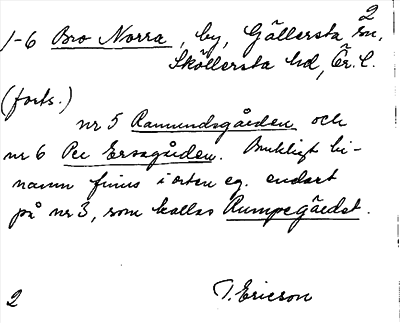 2
1-6 Bro Norra, by, Gällersta sn,
Sköllersta hd, Ör. l.
(forts.)
nr 5 Ramundsgården och
nr 6 Per Ersagården. Brukligt bi-
namn finns i orten eg. endast
på nr 3, som kallas Rumpegårdet.
2 T. Ericson